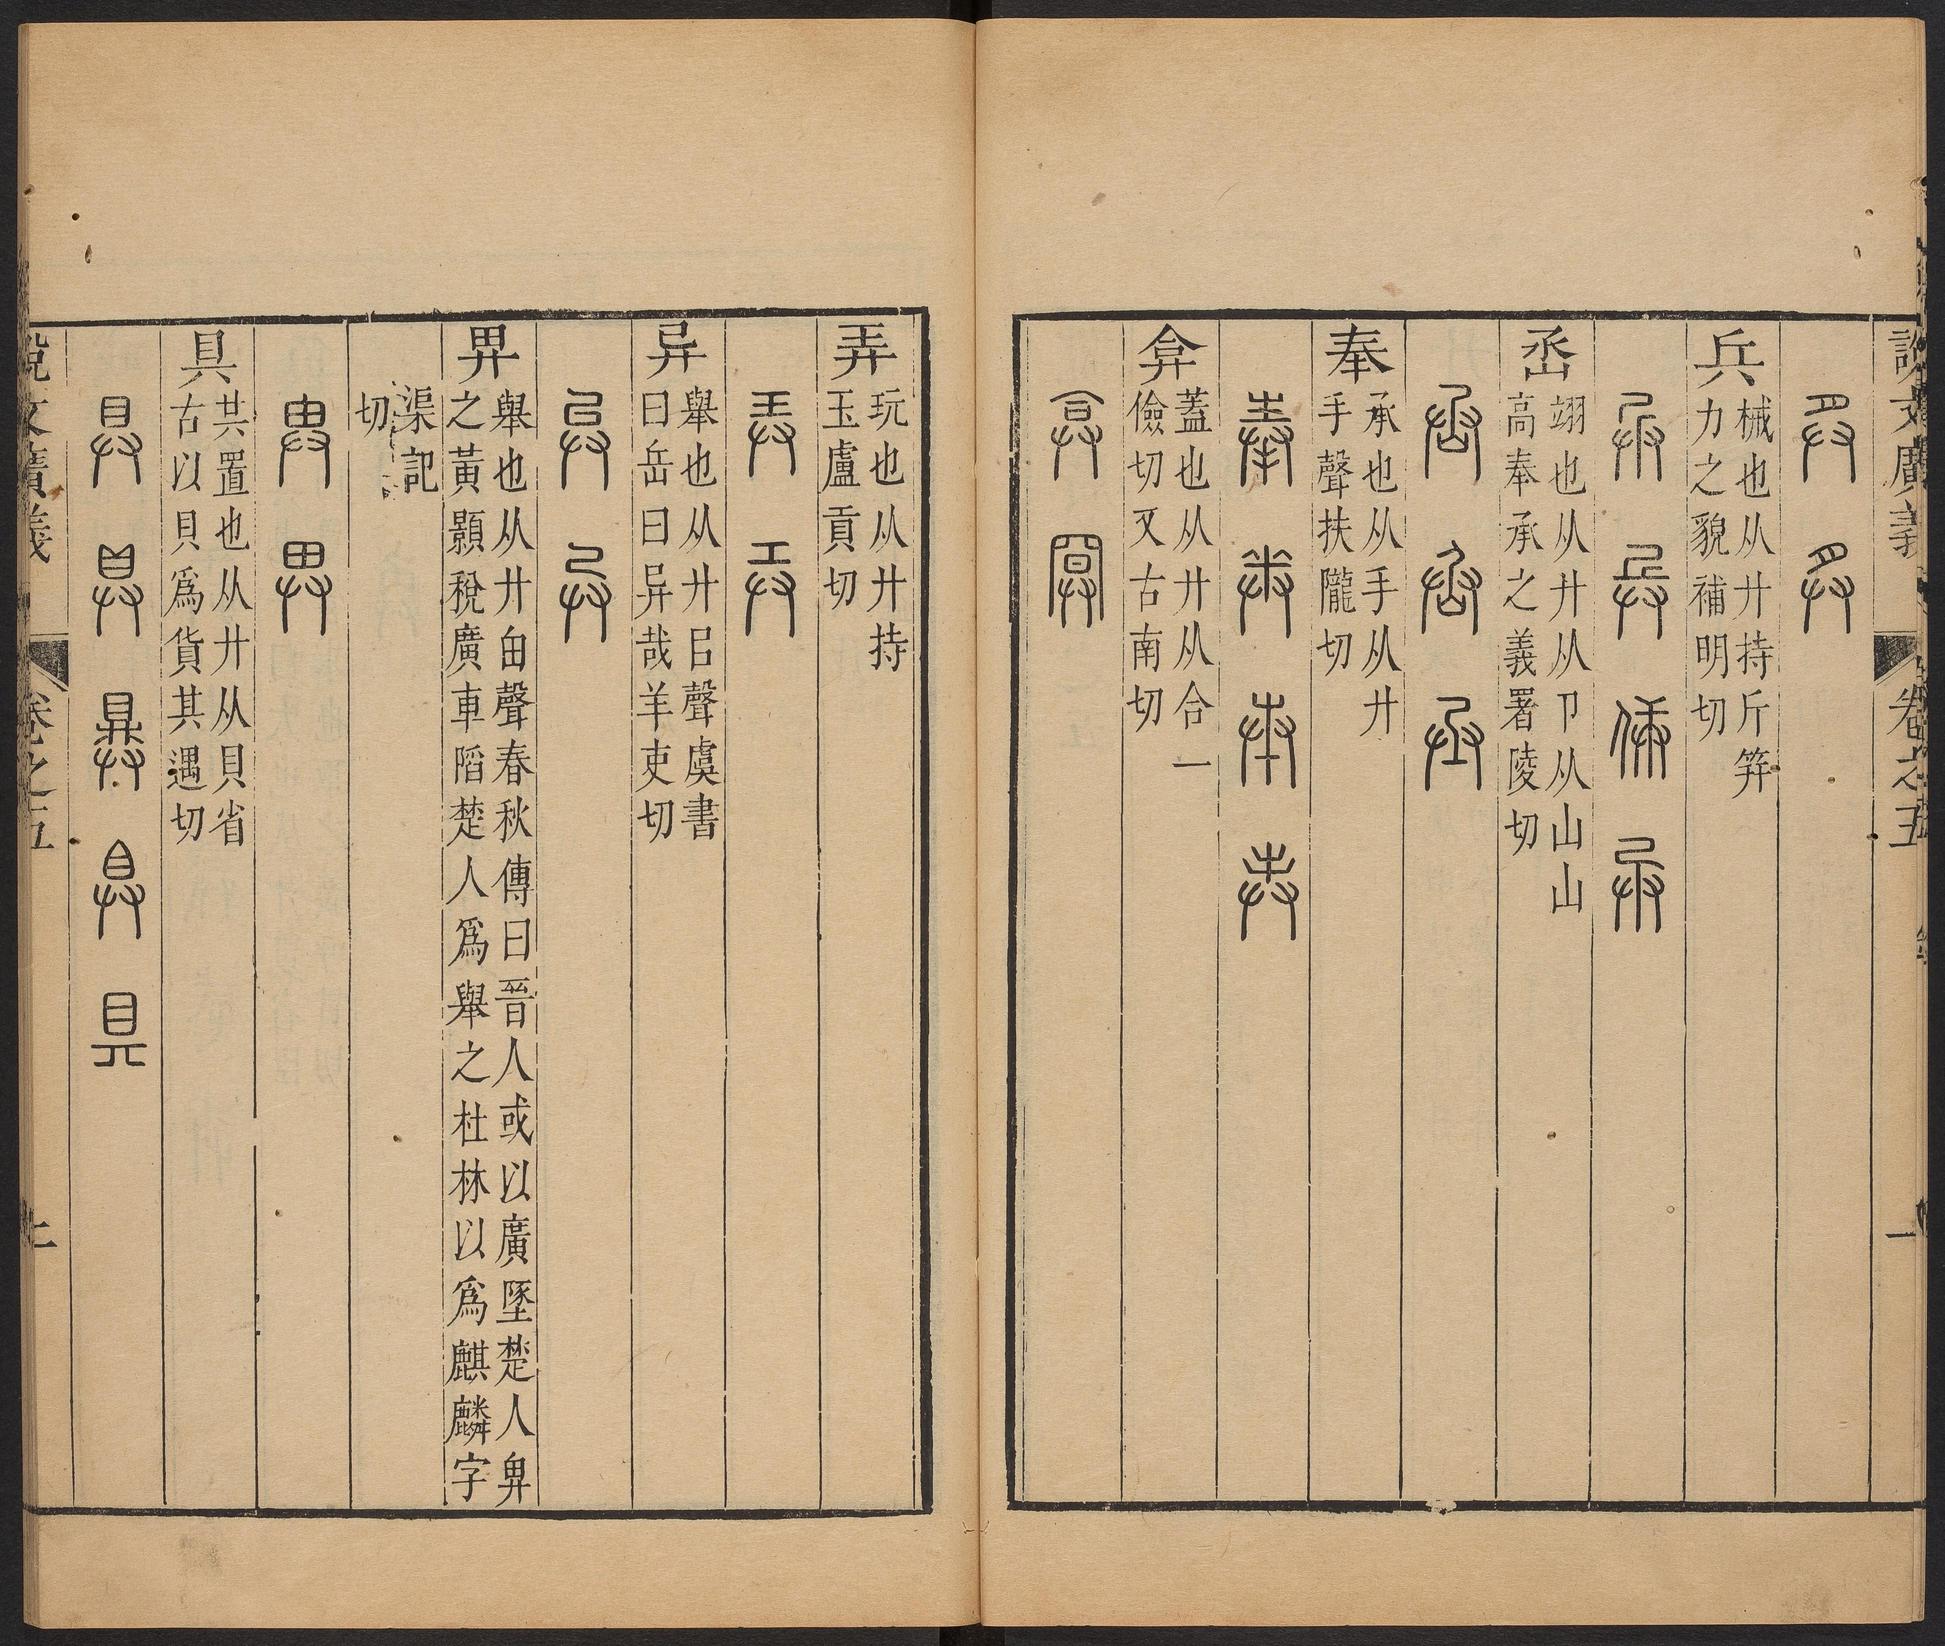 說文廣義
卷之五
一
兵
械也从廾持斤筓
力之貌補明切
丞
翊也从廾从卩从山山
高奉承之義署陵切
奉
承也从手从廾
手聲扶隴切
弇
蓋也从廾从合一
儉切又古南切
弄
玩也从廾持
玉盧貢切
异
舉也从廾㠯聲虞書
曰岳曰异哉羊吏切
畀
舉也从廾甶聲春秋傳曰晉人或以廣墜楚人畁
之黃顥稅廣車䧟楚人爲舉之杜林以爲麒麟字
渠記
切
具
共置也从廾从貝省
古以貝爲貨其遇切
說文廣義
卷之五